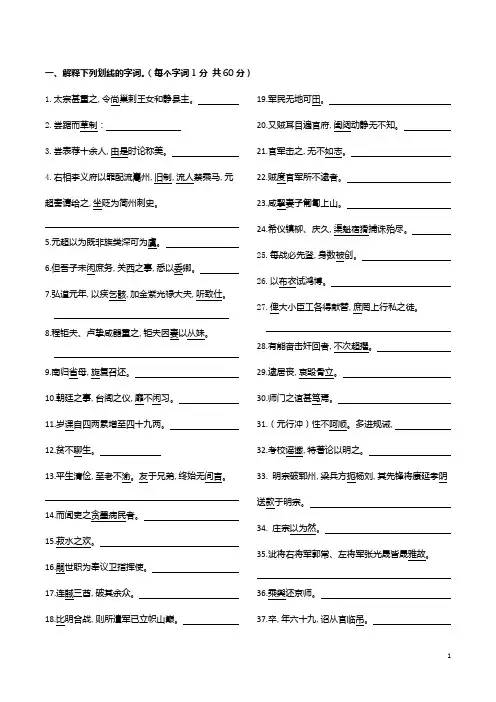 一、解释下列划线的字词。（每个字词1分 共60分）
1.太宗甚重之,令尚巢刺王女和静县主。
2.尝踞而草制：
3.尝表荐十余人,由是时论称美。
4.右相李义府以罪配流巂州,旧制,流人禁乘马,元
超奏请给之,坐贬为简州刺史。
5.元超以为既非族类深可为虞。
6.但吾子未闲庶务,关西之事,悉以委卿。
7.弘道元年,以疾乞骸,加金紫光禄大夫,听致仕。
8.程钜夫、卢挚咸器重之,钜夫因妻以从妹。
9.南归省母,旋复召还。
10.朝廷之事,台阁之仪,靡不闲习。
11.岁课自四两累增至四十九两。
12.贫不聊生。
13.平生清俭,至老不渝。友于兄弟,终始无间言。
14.而闻吏之贪墨病民者。
15.菽水之欢。
16.嗣世职为奉议卫指挥使。
17.连馘三酋,破其余众。
18.比明合战,则所遣军已立帜山巅。
19.军民无地可田。
20.又贼耳目遍官府,闺闼动静无不知。
21.官军击之,无不如志。
22.贼度官军所不逮者。
23.咸挈妻子匍匐上山。
24.希仪镇柳、庆久,渠魁宿猾捕诛殆尽。
25.每战必先登,身数被创。
26.以布衣试鸿博。
27.俾大小臣工各得献替,庶罔上行私之徒。
28.有能奋击奸回者,不次超擢。
29.逮居丧,哀毁骨立。
30.师门之谊甚笃焉。
31.（元行冲）性不阿顺。多进规诫,
32.考校谣谶,特著论以明之。
33. 明宗破郓州,梁兵方扼杨刘,其先锋将康延孝阴
送款于明宗。
34. 庄宗以为然。
35.泚将右将军郭常、左将军张光晟皆晟雅故。
36.乘舆还京师。
37.卒,年六十九,诏从官临吊。
1